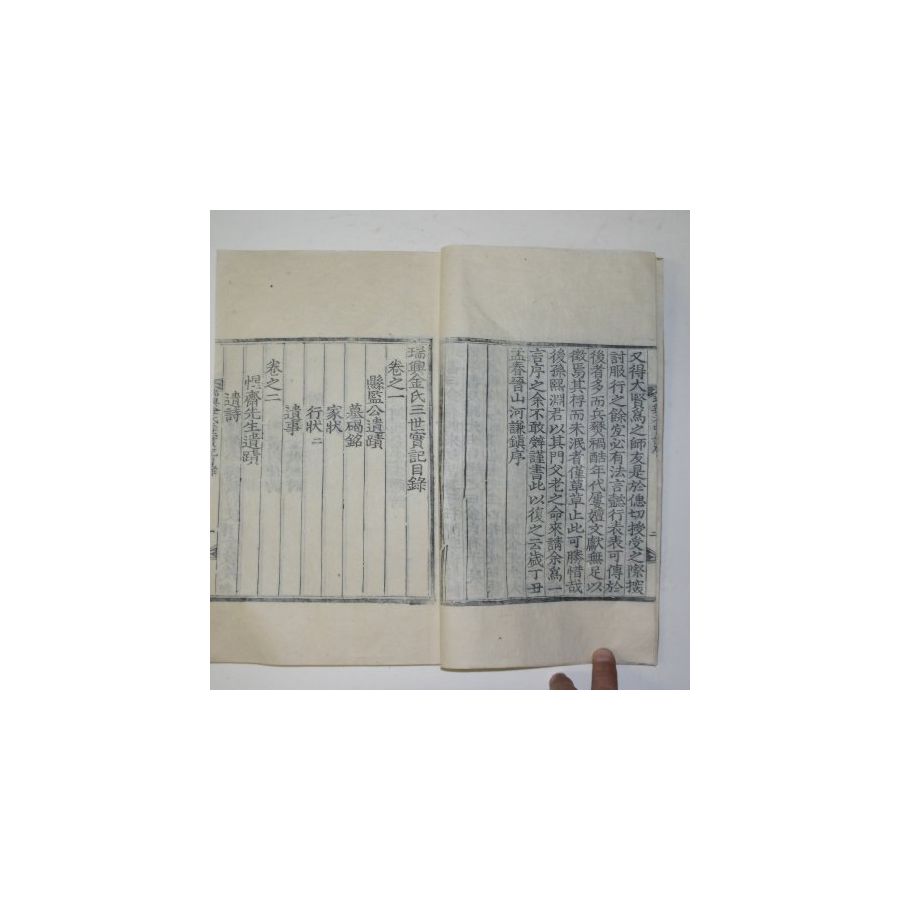 又得大賢爲之師友是於偲切授受之際擩
討服行之餘宜必有法言懿行表表可傳於
後者多而兵燹禍酷年代屢嬗文獻無足以
徵焉其得而未泯者僅草草止此可勝惜哉
後孫熙淵君以其門父老之命來請余爲一
言序之余不敢辭謹書此以復之云歲丁丑
孟春晉山河謙鎭序
瑞興金氏三世實記目錄
卷之一
縣監公遺蹟
墓碣銘
家狀
行狀 二
遺事
卷之二
齋先生遺蹟
遺詩